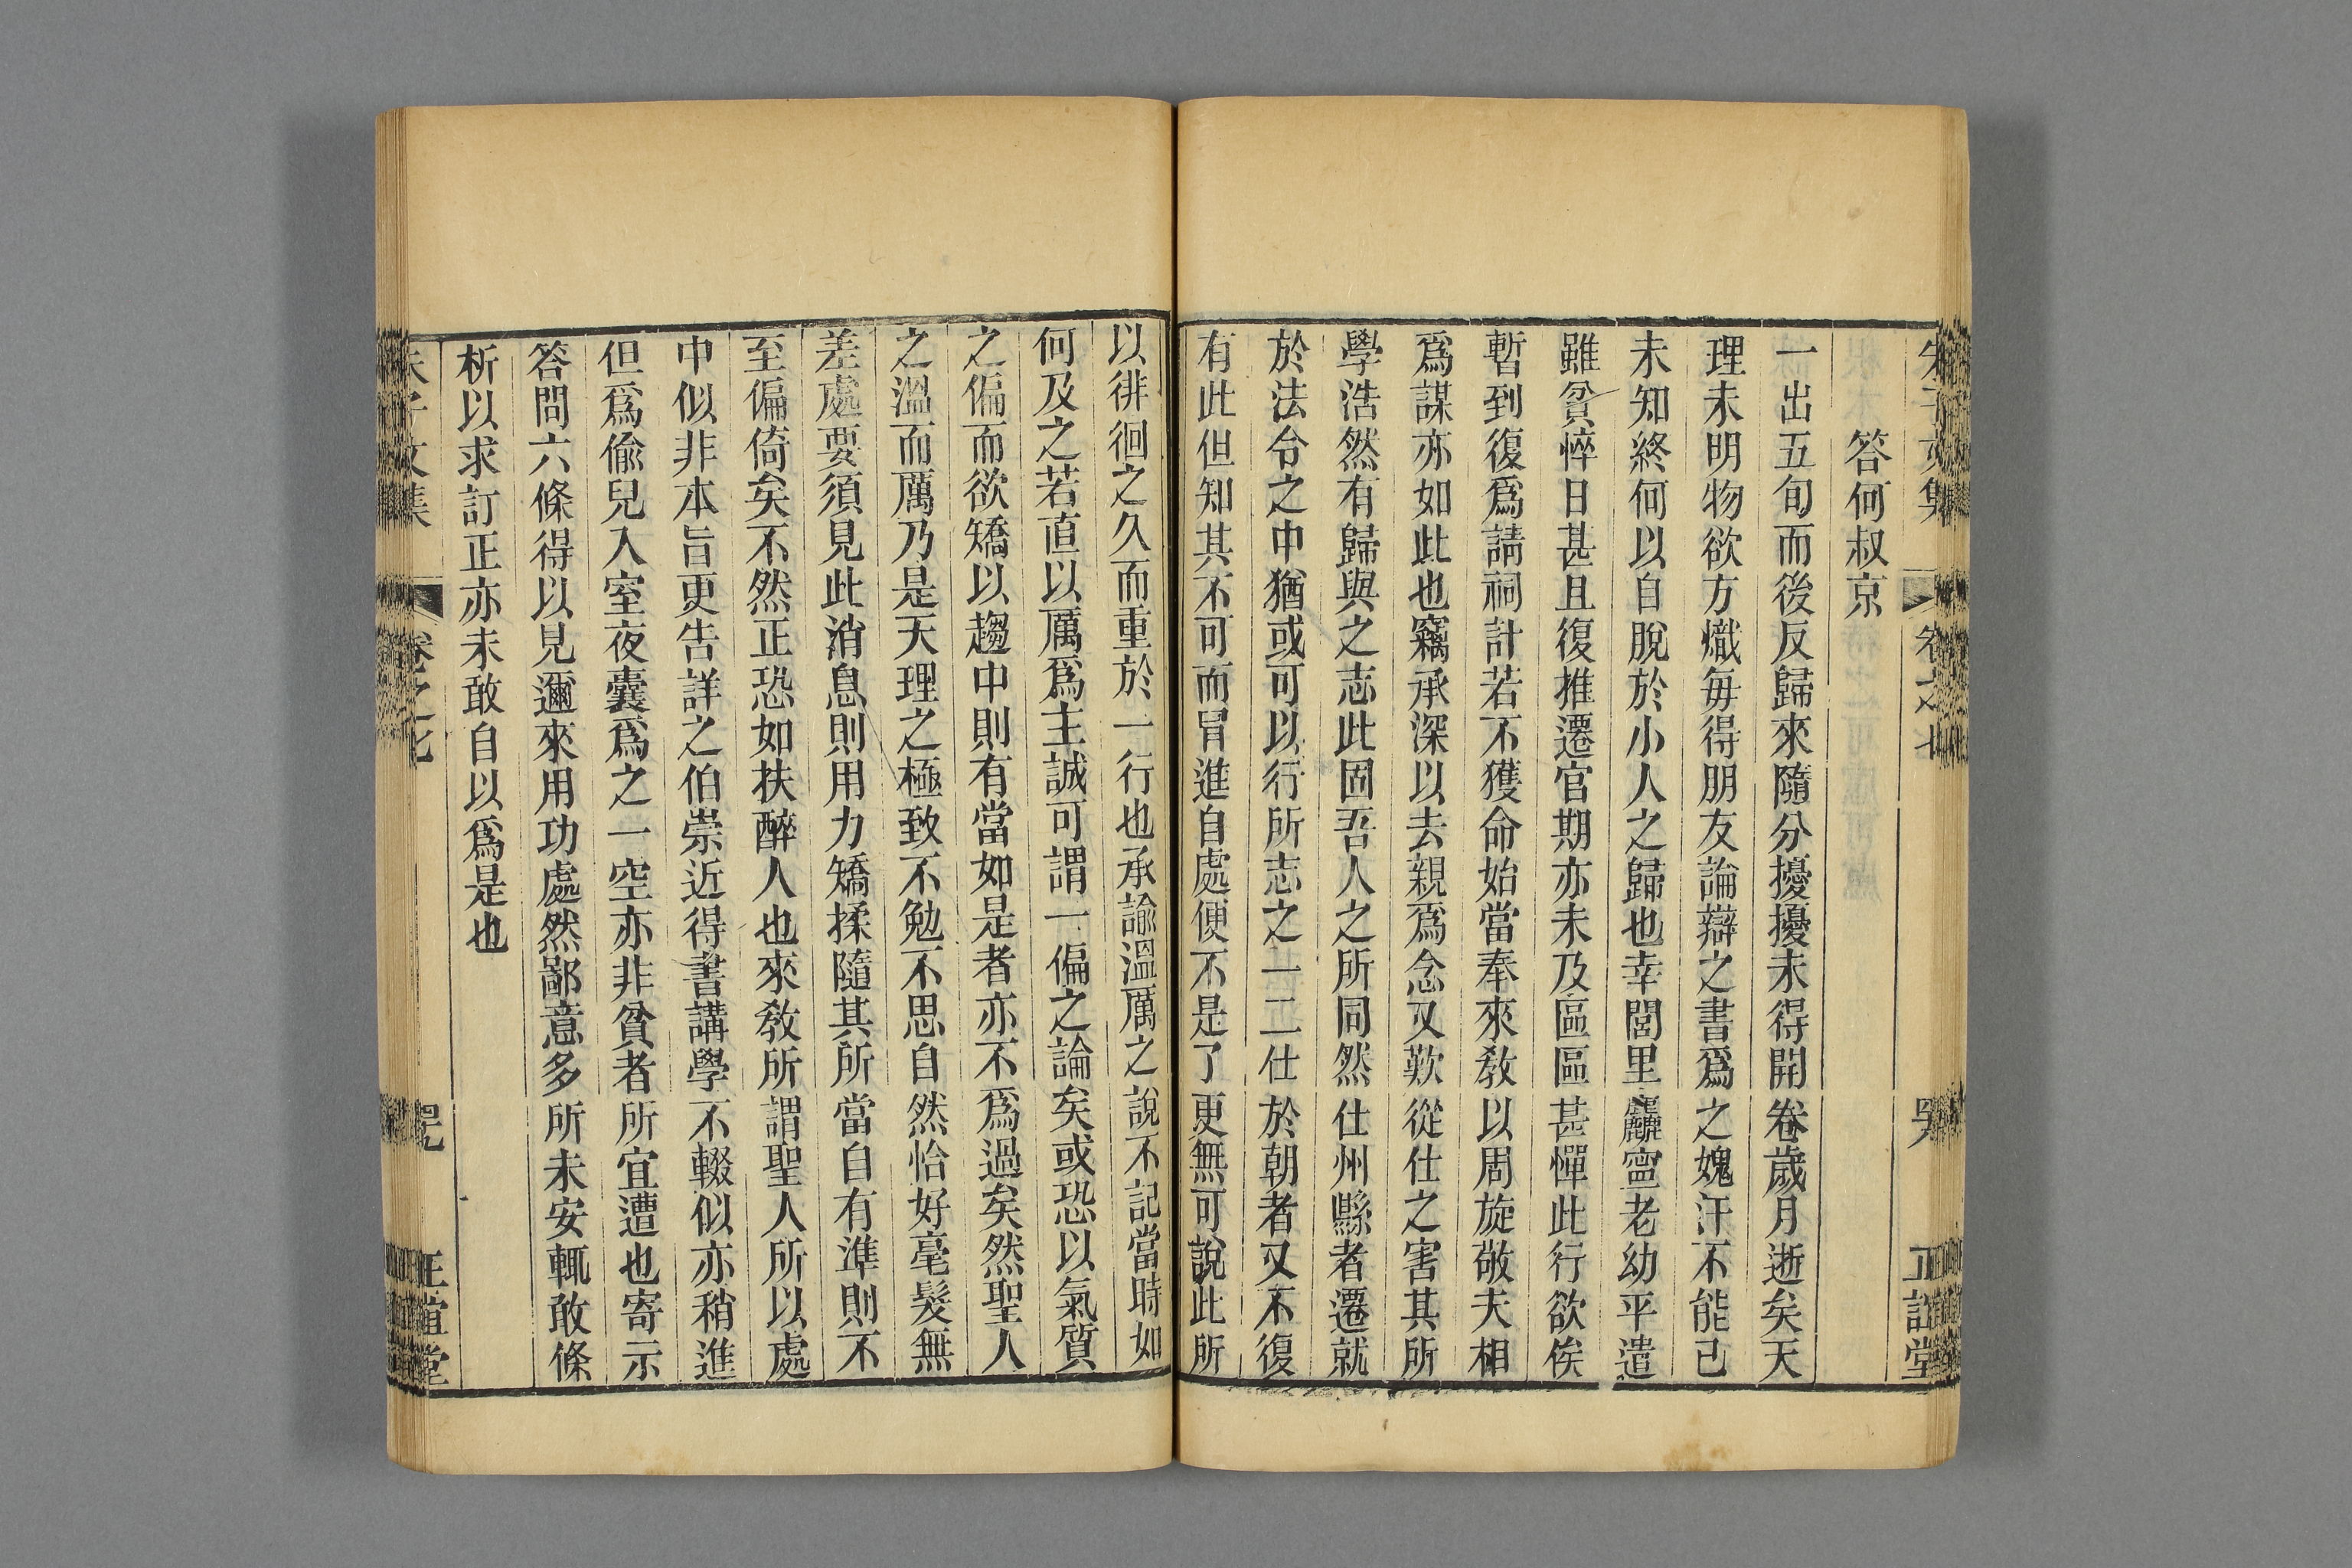 朱子文集 卷之七 哭 正誼堂
答何叔京
一出五旬而後反歸來隨分擾擾未得開卷歲月逝矣天
理未明物欲方熾每得朋友論辯之書爲之媿汗不能已
未知終何以自脫於小人之歸也幸閭里麤寍老幼平遣
雖貧悴日甚且復推遷官期亦未及區區甚憚此行欲俟
暫到復爲請祠計若不獲命始當奉來敎以周旋敬夫相
爲謀亦如此也竊承深以去親爲念又歎從仕之害其所
學浩然有歸與之志此固吾人之所同然仕州縣者遷就
於法令之中猶或可以行所志之一二仕於朝者又不復
有此但知其不可而冒進自處便不是了更無可說此所
以徘徊之久而重於一行也承諭溫厲之說不記當時如
何及之若直以厲爲主誠可謂一偏之論矣或恐以氣質
之偏而欲矯以趨中則有當如是者亦不爲過矣然聖人
之溫而厲乃是天理之極致不勉不思自然恰好毫髮無
差處要須見此消息則用力矯揉隨其所當自有準則不
至偏倚矣不然正恐如扶醉人也來敎所謂聖人所以處
中似非本旨更告詳之伯崇近得書講學不輟似亦稍進
但爲偸兒入室夜囊爲之一空亦非貧者所宜遭也寄示
答問六條得以見邇來用功處然鄙意多所未安輒敢條
析以求訂正亦未敢自以爲是也
朱子文集 卷之七 正誼堂